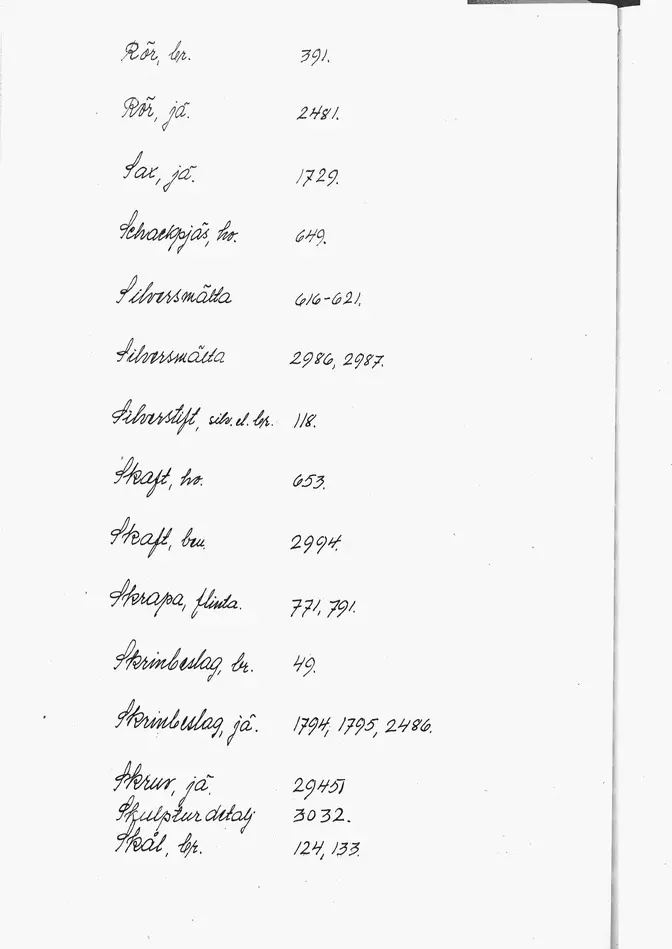 Rör, br. 391.
Rör, jä. 2481.
Sax, jä. 1729.
Schackpjäs, ho. 649.
Silversmälta 616-621.
Silversmälta 2986, 2987.
Silverstift, silv. el. br. 118.
Skaft, ho. 653.
Skaft, ben. 2994.
Skrapa, flinta. 771, 791.
Skrinbeslag, br. 49.
Skrinbeslag, jä. 1794, 1795, 2486.
Skruv, jä. 2945
Skulpturdetalj 3032.
Skål, br. 124, 133.